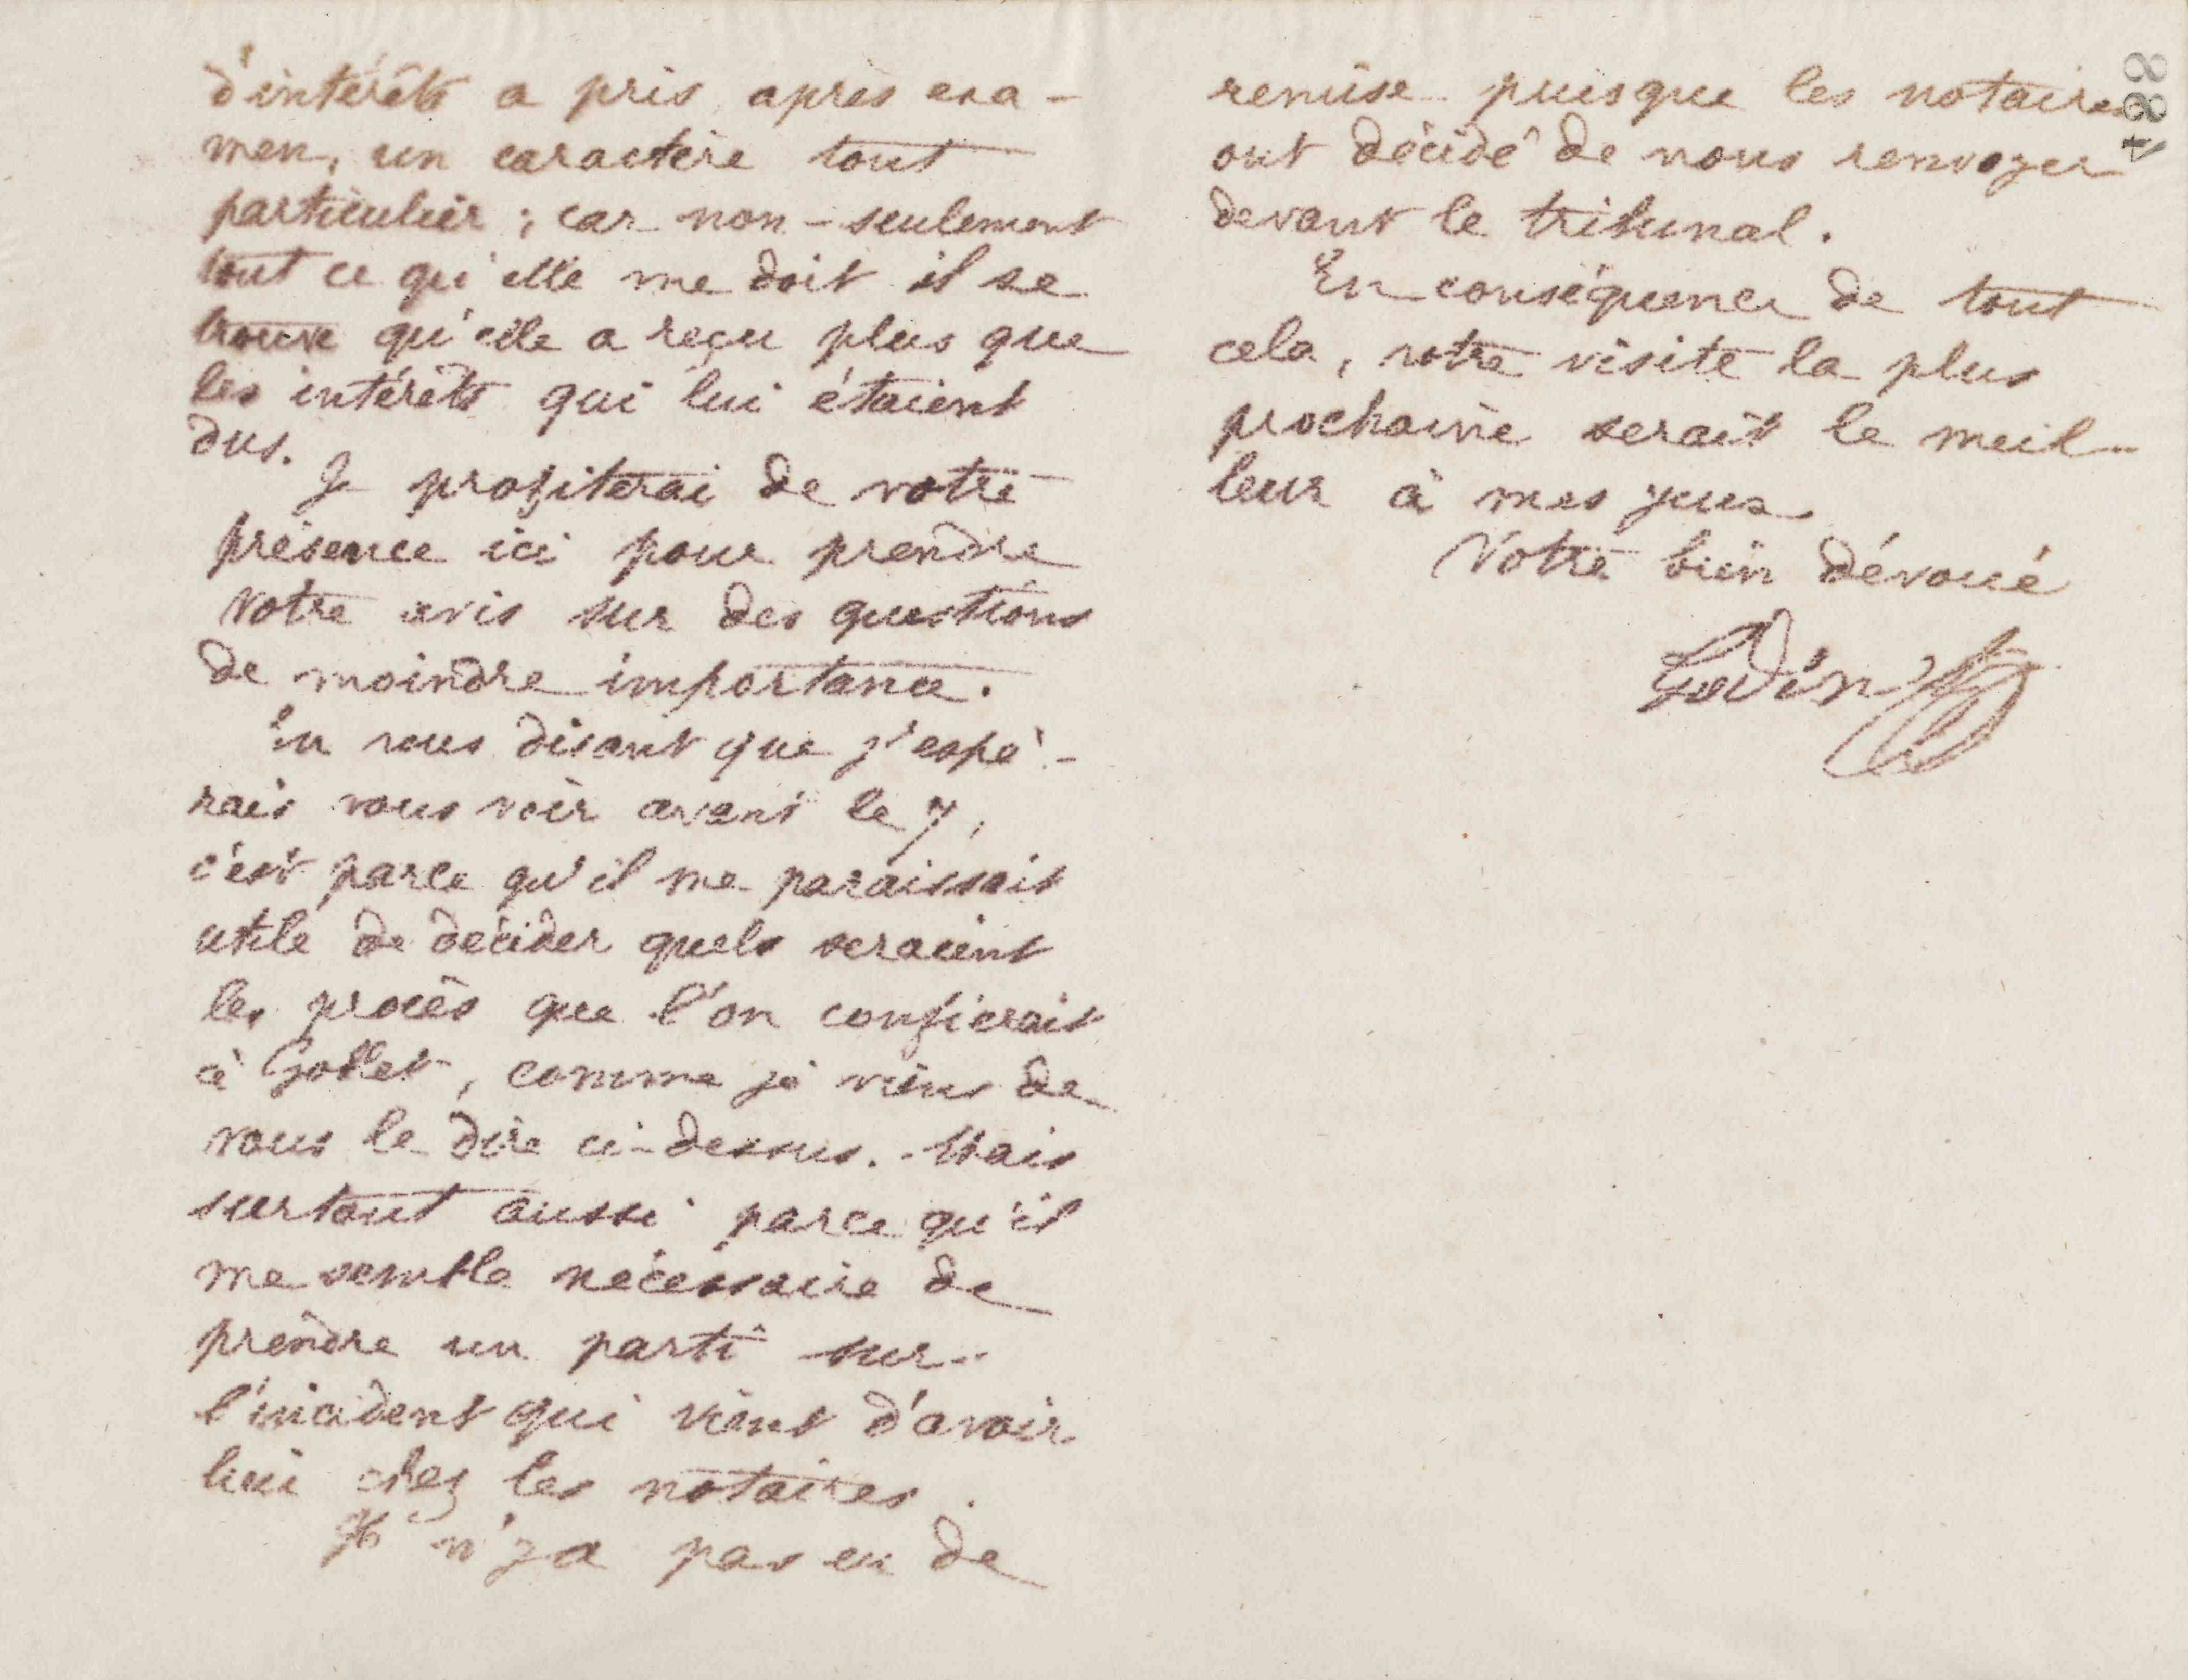 d'intérêts a pris, après exa-
men, un caractère tout
particulier ; car non-seulement
tout ce qu'elle me doit il se
trouve qu'elle a reçu plus que
les intérêts qui lui étaient
dus.
Je profiterai de votre
présence ici pour prendre
votre avis sur des questions
de moindre importance.
En vous disant que j'espé-
rais vous voir avant le 7,
c'est parce qu'il me paraissait
utile de décider quels seraient
les procès que l'on confierait
à , comme je viens de
vous le dire ci-dessus. Mais
surtout aussi parce qu'il
me semble nécessaire de
prendre un parti sur
l'incident qui vient d'avoir
lieu chez les notaires.
Il n'y a pas eu de
remise puisque les notaires
ont décidé de nous renvoyer
devant le tribunal.
En conséquence de tout
cela, votre visite la plus
prochaine serait le meil-
leur à mes yeux.
Votre bien dévoué
Godin